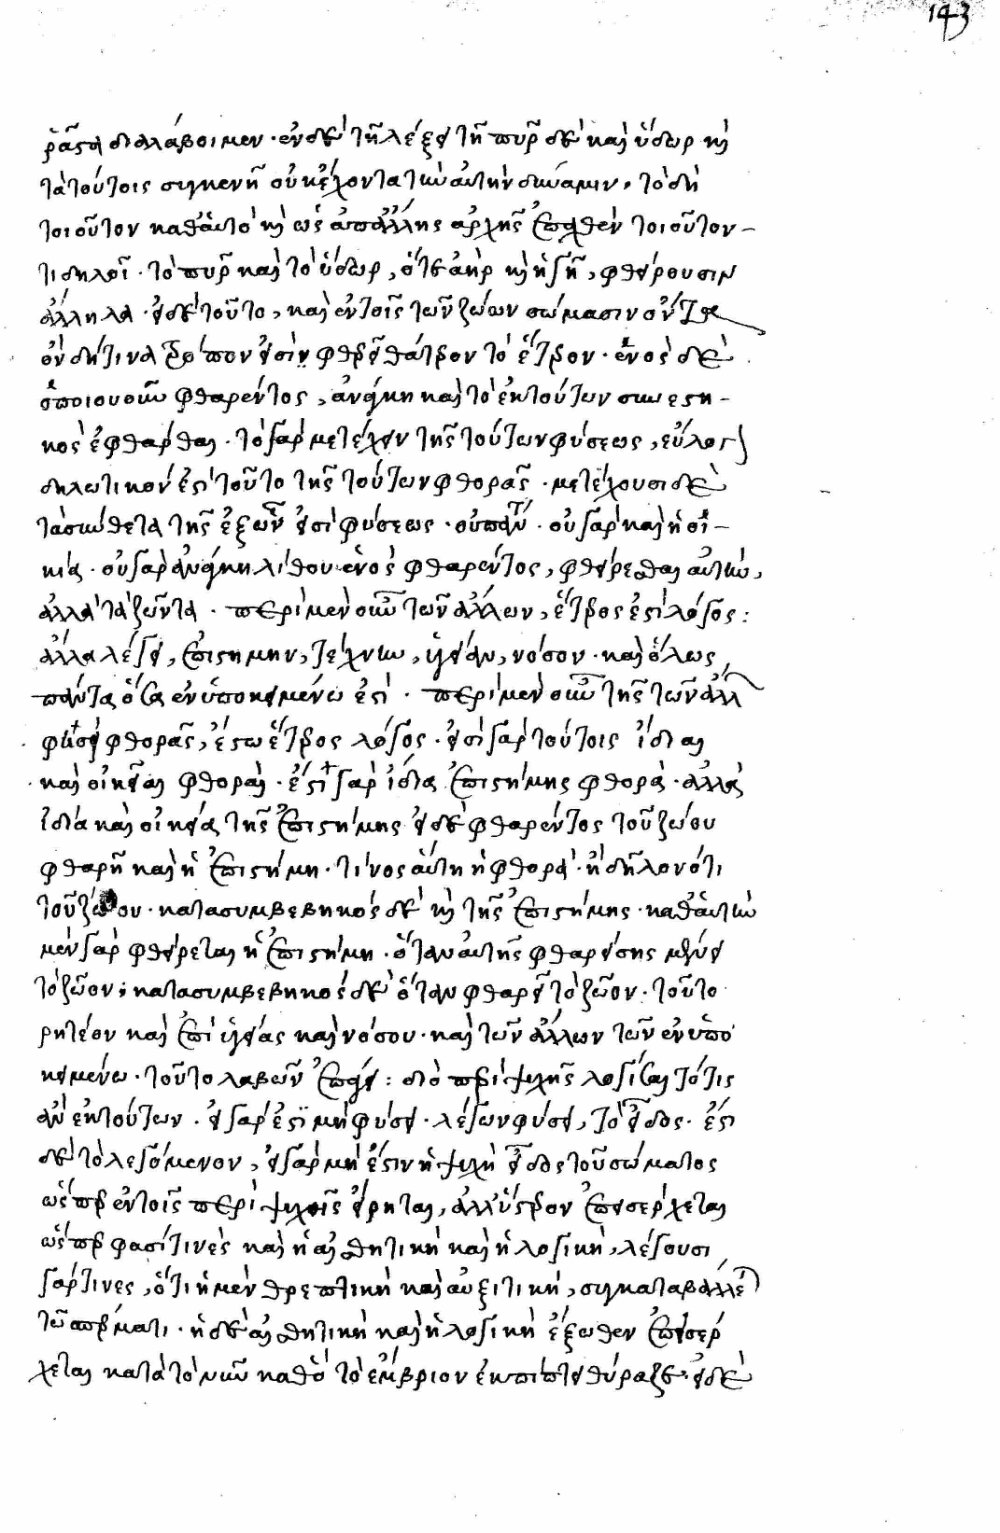 143
ρᾶστα διαλάβοιμεν · ἐν δὲ τῇ λέξει τῇ πῦρ δὲ καὶ ὕδωρ καὶ
τὰ τούτοις συγγενῆ οὐκ ἔχοντα τὴν αὐτὴν δύναμιν, τὸ δὴ
τοιοῦτον καθ' αὑτὸ καὶ ὡς ἀπ' ἄλλης ἀρχῆς ἐπαχθὲν τοιοῦτον
τι δηλοῖ · τὸ πῦρ καὶ τὸ ὕδωρ, ὅ τε ἀὴρ καὶ ἡ γῆ, φθείρουσιν
ἄλληλα · εἰ δὲ τοῦτο, καὶ ἐν τοῖς τῶν ζώων σώμασιν ὄντα
ὃν δή τινα τρόπον εἰσὶν φθερεῖ θάτερον τὸ ἕτερον · ἑνὸς δὲ
ὁποιουοῦν φθαρέντος, ἀνάγκη καὶ τὸ ἐκ τούτων συνεστη-
κὸς ἐφθάρθαι · τὸ γὰρ μετέχειν τῆς τούτων φύσεως, εὔλογ
δηλωτικόν ἐστι τοῦτο τῆς τούτων φθορᾶς · μετέχουσι δὲ
τὰ σύνθετα τῆς ἐξ ὧν εἰσι φύσεως · οὐ πάντ · οὐ γὰρ καὶ ἡ οἰ-
κία · οὐ γὰρ ἀνάγκη λίθου ἑνὸς φθαρέντος, φθείρεσθαι αὐτὴν,
ἀλλὰ τὰ ζῶντα · περὶ μὲν οὖν τῶν ἄλλων, ἕτερος ἐστὶ λόγος :
ἄλλα λέγει, ἐπιστήμην, τέχνην, ὑγείαν, νόσον · καὶ ὅλως
πάντα ὅσα ἐν ὑποκειμένω ἐστί · περὶ μὲν οὖν τῆς τῶν ἄλλ
φύσει φθορᾶς, ἔστω ἕτερος λόγος · εἰσὶ γὰρ τούτοις ἴδιαι
καὶ οἰκεῖαι φθοραὶ · ἔστι γὰρ ἰδία ἐπιστήμης φθορὰ · ἀλλὰ
ἰδία καὶ οἰκεία τῆς ἐπιστήμης εἰ δὲ φθαρέντος τοῦ ζώου
φθαρῆ καὶ ἡ ἐπιστήμη · τίνος αὕτη ἡ φθορά · ἢ δῆλον ὅτι
τοῦ ζώου · κατὰ συμβεβηκός δὲ καὶ τῆς ἐπιστήμης · καθ' αὑτὴν
μὲν γὰρ φθείρεται ἡ ἐπιστήμη · ὅταν αὐτῆς φθαρείσης μένει
τὸ ζῶον · κατὰ συμβεβηκός δὲ ὅταν φθαρεῖ τὸ ζῶον · τοῦτο
ρητέον καὶ ἐπὶ ὑγείας καὶ νόσου · καὶ τῶν ἄλλων τῶν ἐν ὑπο
κειμένω · τοῦτο λαβὼν ἐπάγει : διὸ περὶ ψυχῆς λογίσαιτό τις
ἂν ἐκ τούτων · εἰ γάρ ἐστι μὴ φύσει · λέγων φύσει, τὸ εἶδος · ἔστι
δὲ τὸ λεγόμενον, εἰ γὰρ μὴ ἔστιν ἡ ψυχὴ εἶδος τοῦ σώματος
ὥσπερ ἐν τοῖς περὶ ψυχῆς εἴρηται, ἀλλ' ὕστερον ἐπεισέρχεται
ὥσπερ φασί τινὲς καὶ ἡ αἰσθητικὴ καὶ ἡ λογικὴ, λέγουσι
γάρ τινες, ὅτι ἡ μὲν θρεπτικὴ καὶ αὐξιτικὴ, συγκαταβάλλε
τῶ σπέρματι · ἡ δὲ αἰσθητικὴ καὶ ἡ λογικὴ ἔξωθεν ἐπεισέρ
χεται κατὰ τὸ νῦν καθὸ τὸ ἔμβριον ἐκπίπτει θύραζε · εἰ δὲ